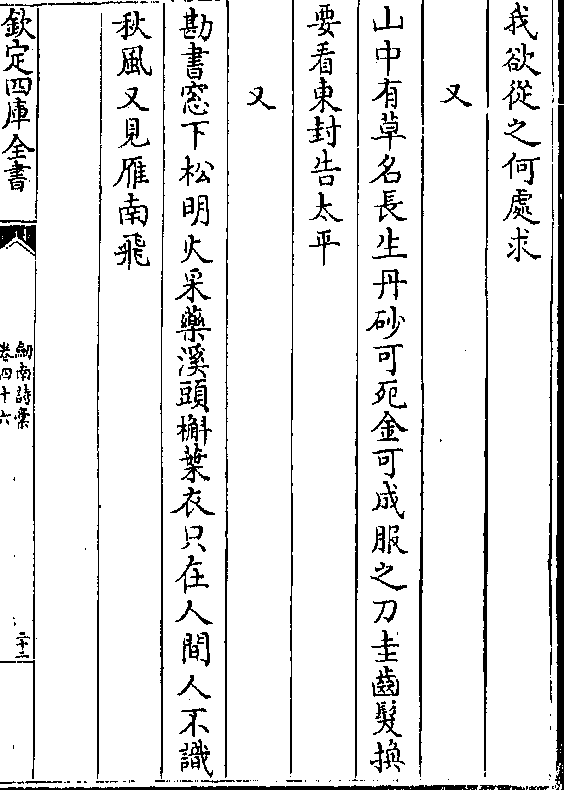 我欲從之何處求
又
山中有草名長生丹砂可死金可成服之刀圭齒髮換
要看東封告太平
又
勘書窓下松明火采藥溪頭槲葉衣只在人間人不識
秋風又見雁南飛
欽定四庫全書
劒南詩藁
卷四十六
二十二